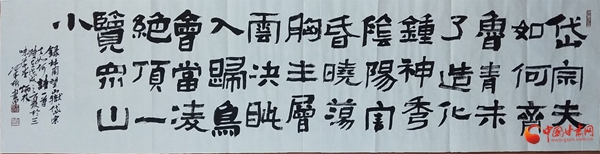 岱宗夫
如何齊
魯青未
了造化
鍾神秀
陰陽割
昏曉蕩
胸生層
雲決眦
入歸鳥
會當凌
絕頂一
覽眾山
小
中国甘肃网